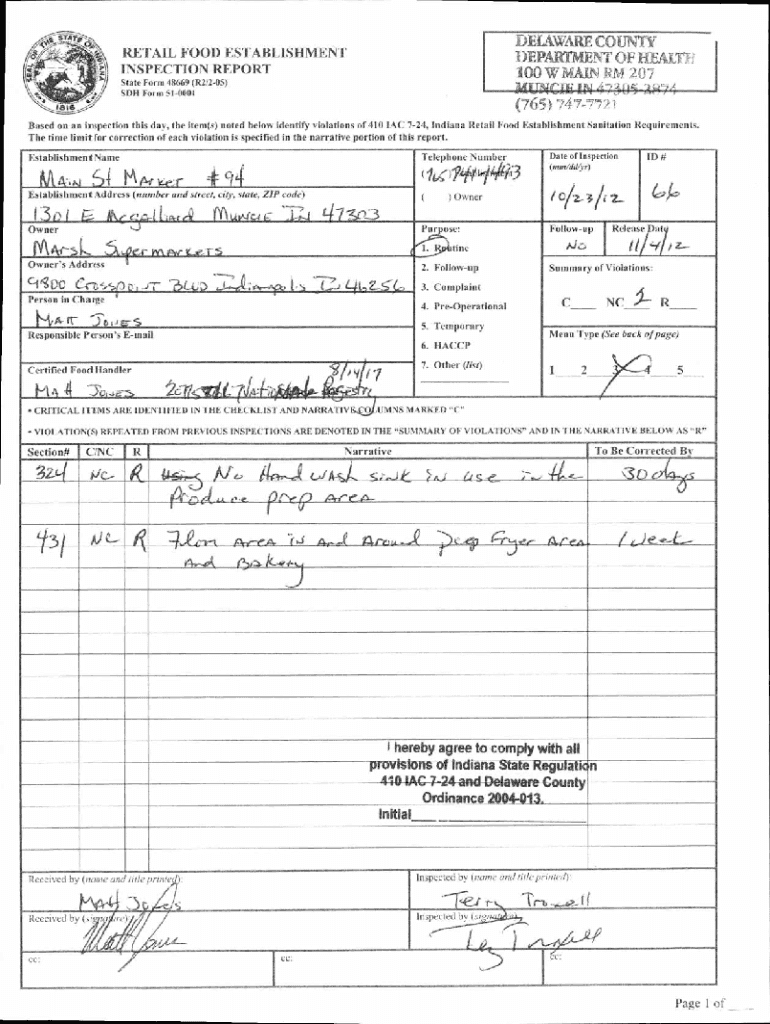 RETAIL FOOD ESTABLISHMENT
INSPECTION REPORT
State Form 48669 (R2/2-05)
SDH Form 51-0001
SEAL OF THE STATE OF INDIANA
1816
DELAWARE COUNTY
DEPARTMENT OF HEALTH
100 W MAIN RM 207
MUNCIE IN 47305-2874
(765) 747-7721
Based on an inspection this day, the item(s) noted below identify violations of 410 IAC 7-24, Indiana Retail Food Establishment Sanitation Requirements.
The time limit for correction of each violation is specified in the narrative portion of this report.
Establishment Name
Main St Market #94
Telephone Number
Date of Inspection
(mm/dd/yr)
10/23/12
ID #
66
Establishment Address (number and street, city, state, ZIP code)
1301 E Mcgalliard Muncie In 47303
( ) Owner
Owner
Marsh Supermarkets
Purpose:
1. Routine
2. Follow-up
3. Complaint
4. Pre-Operational
5. Temporary
6. HACCP
7. Other (list)
Follow-up
No
Release Date
11/4/12
Owner's Address
9800 Crosspoint BLVD Indianapolis In 46256
Summary of Violations:
C NC 2 R
Person in Charge
Matt Jones
Responsible Person's E-mail
Menu Type (See back of page)
1 2 3 4 5
Certified Food Handler
8/14/17
Matt Jones
• CRITICAL ITEMS ARE IDENTIFIED IN THE CHECKLIST AND NARRATIVE COLUMNS MARKED "C"
• VIOLATION(S) REPEATED FROM PREVIOUS INSPECTIONS ARE DENOTED IN THE "SUMMARY OF VIOLATIONS" AND IN THE NARRATIVE BELOW AS "R"
Section# C/NC R Narrative To Be Corrected By
324 NC R No Hand wash sink in use in the 30 days
Produce prep area
431 NC R Floor area in and around Deep Fryer area 1 week
And Bakery
I hereby agree to comply with all
provisions of Indiana State Regulation
410 IAC 7-24 and Delaware County
Ordinance 2004-013.
Initial
Received by (name and title printed):
Matt Jones
Inspected by (name and title printed):
Terry Troxell
Received by (signature):
Matt Jones
Inspected by (signature):
Terry Troxell
cc: cc: cc:
Page 1 of